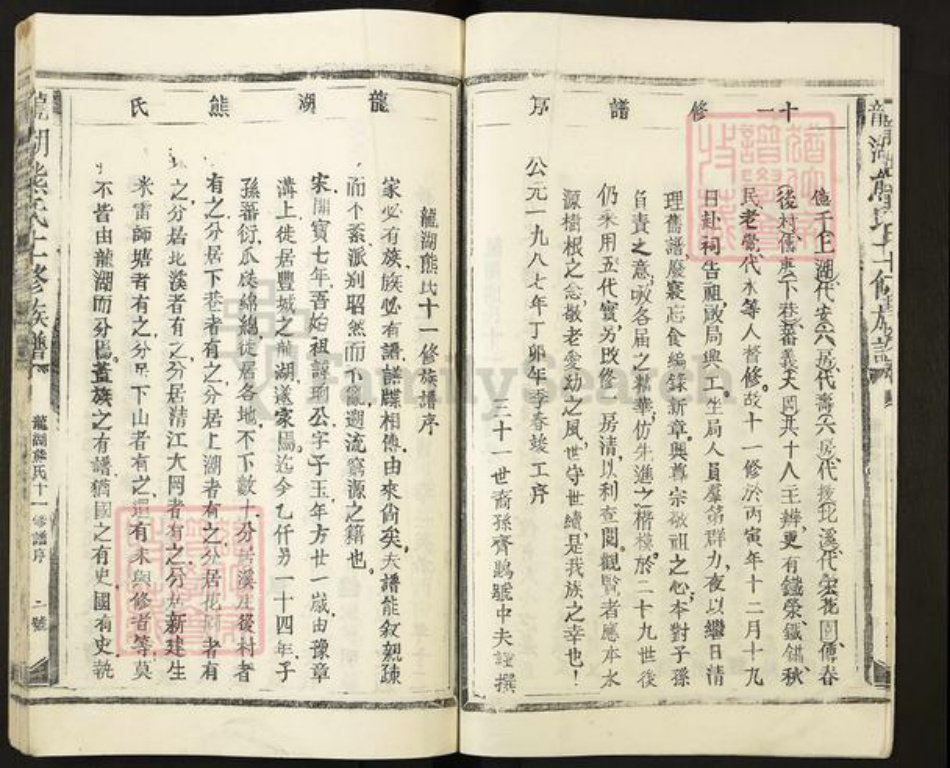 十一修譜序
億千任上湖代安六房代壽六房代接北溪代宏花園傳春
後村儒康下巷蕃義大岡共十人主辨更有鐵榮鐵鏘秋
民老黨代水等人督修故十一修於丙寅年十二月十九
日赴祠告祖啟局興工坐局人員羣策群力夜以繼日清
理舊譜廢寢忘食編錄新章興尊宗敬祖之心本對子孫
負責之意吸各届之精華仿先進之楷模於二十九世後
仍采用五代實另改修一房清以利查閱觀覽者應本水
源樹根之念敬老愛幼之風世守世續是我族之幸也！
公元一九八七年丁卯年季春竣工序
三十一世裔孫齊鵾號中夫謹撰
龍湖熊氏十一修族譜
龍湖熊氏
龍湖熊氏十一修族譜序
家必有族族必有譜譜牒相傳由來尚矣夫譜能敘親疎
而不紊派别昭然而不亂遡流窮源之籍也。
宋開寶七年吾始祖諱瑚公字子玉年方廿一歲由豫章
溝上徒居豐城之龍湖遂家焉。迄今乙仟另一十四年子
孫蕃衍瓜瓞綿綿徒居各地不下數十分居溪庄後村者
有之分居下巷者有之分居上湖者有之分居花園者有
之分居北溪者有之分居清江大岡者有之分居新建生
米雷師塘者有之分居下山者有之還有未與修者等莫
不皆由龍湖而分焉。蓋族之有譜猶國之有史國有史執
龍湖熊氏十一修族譜
龍湖熊氏十一修譜序
二號
FamilySearch